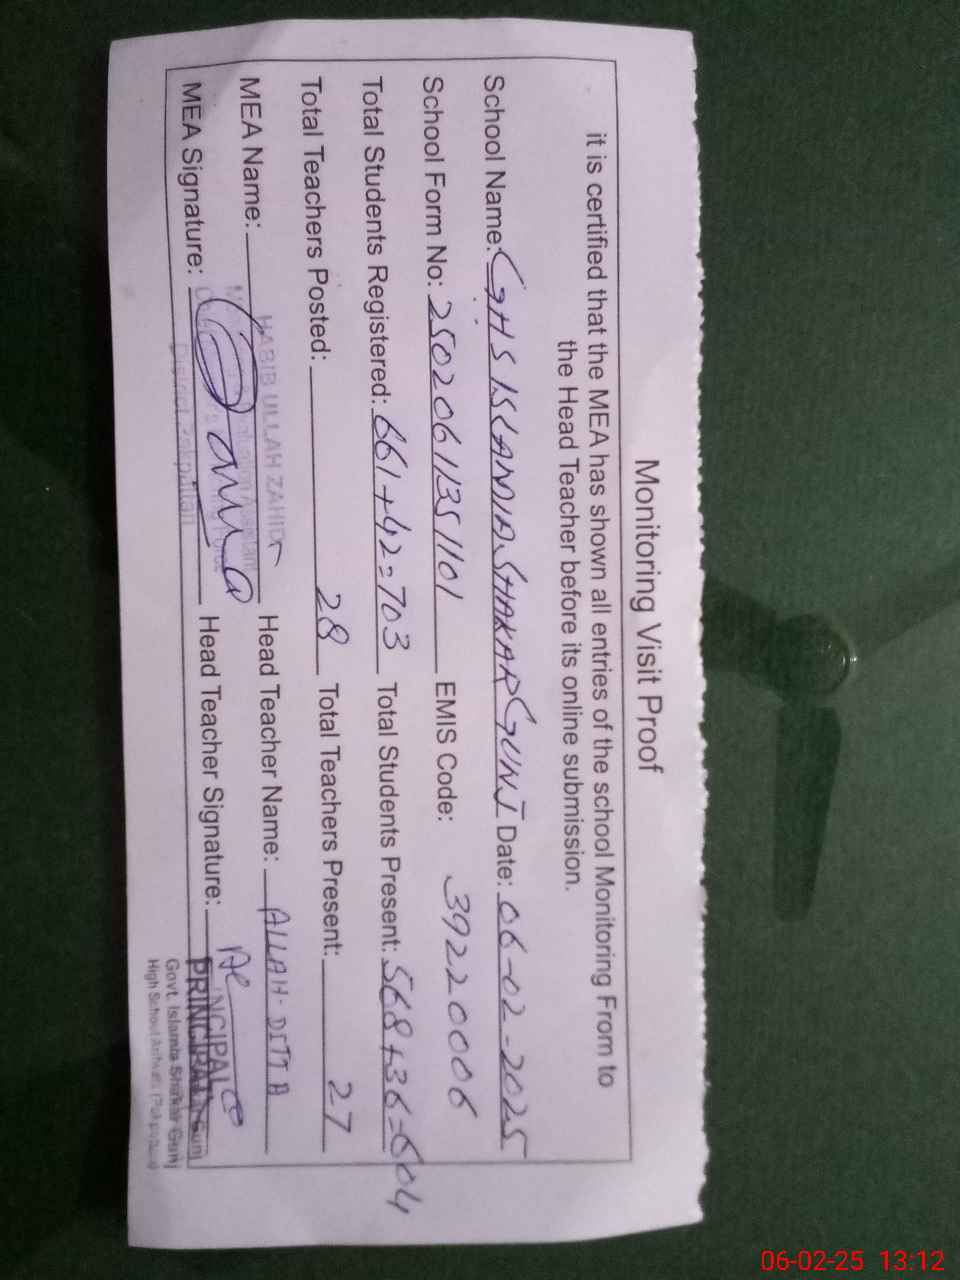 Monitoring Visit Proof
it is certified that the MEA has shown all entries of the school Monitoring From to
the Head Teacher before its online submission.
School Name: GHS ISLAMIA SHAKAR GUNJ Date: 06-02-2025
School Form No: 25020611351101 EMIS Code: 39220006
Total Students Registered: 661+42=703 Total Students Present: 568+36=604
Total Teachers Posted: 28 Total Teachers Present: 27
MEA Name: HABIB ULLAH ZAHID Head Teacher Name: ALLAH-DITTA
MEA Signature: Head Teacher Signature:
District Pakpattan
PRINCIPAL
Govt. Islamia Shakar Gunj
High School
06-02-25 13:12